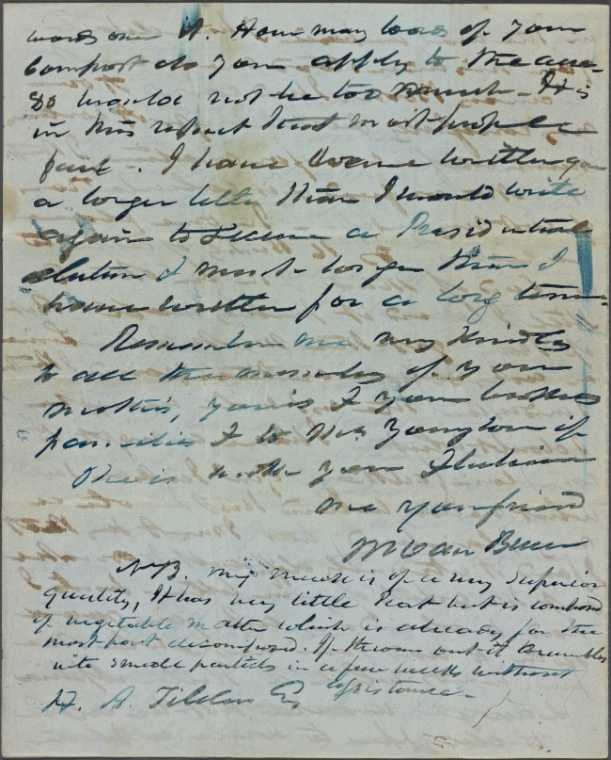 words on it. How many loads of your
Compost do you apply to the acre
80 would not be too much – It is
in this respect that most people
fail. I have been writing you
a longer letter than I would write
again to secure a Presidential
election & much longer than I
have written for a long time
Remember me very kindly
to all the members of your
mother's, yours & your brothers
families & to Mrs
she is with you & believe
me your friend
M Van Buren
N.B. my muck is of a very superior
quality, It has very little peat but is composed
of vegetable matter which is already for the
most part decomposed. If thrown out it crumbles
into small particles in a few weeks without
assistance.
Tilden Esq